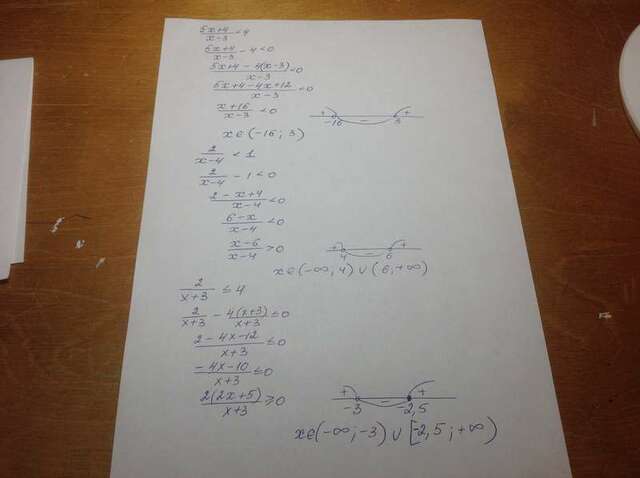 (5x+4)/(x-3) < 4
(5x+4)/(x-3) - 4 < 0
(5x+4-4(x-3))/(x-3) < 0
(5x+4-4x+12)/(x-3) < 0
(x+16)/(x-3) < 0
+ - +
-16 3
x∈(-16; 3)
2/(x-4) < 1
2/(x-4) - 1 < 0
(2-x+4)/(x-4) < 0
(6-x)/(x-4) < 0
(x-6)/(x-4) > 0
+ - +
4 6
x∈(-∞; 4) ∪ (6; +∞)
2/(x+3) ≤ 4
2/(x+3) - 4(x+3)/(x+3) ≤ 0
(2-4x-12)/(x+3) ≤ 0
(-4x-10)/(x+3) ≤ 0
2(2x+5)/(x+3) ≥ 0
+ - +
-3 -2,5
x∈(-∞; -3) ∪ [-2,5; +∞)